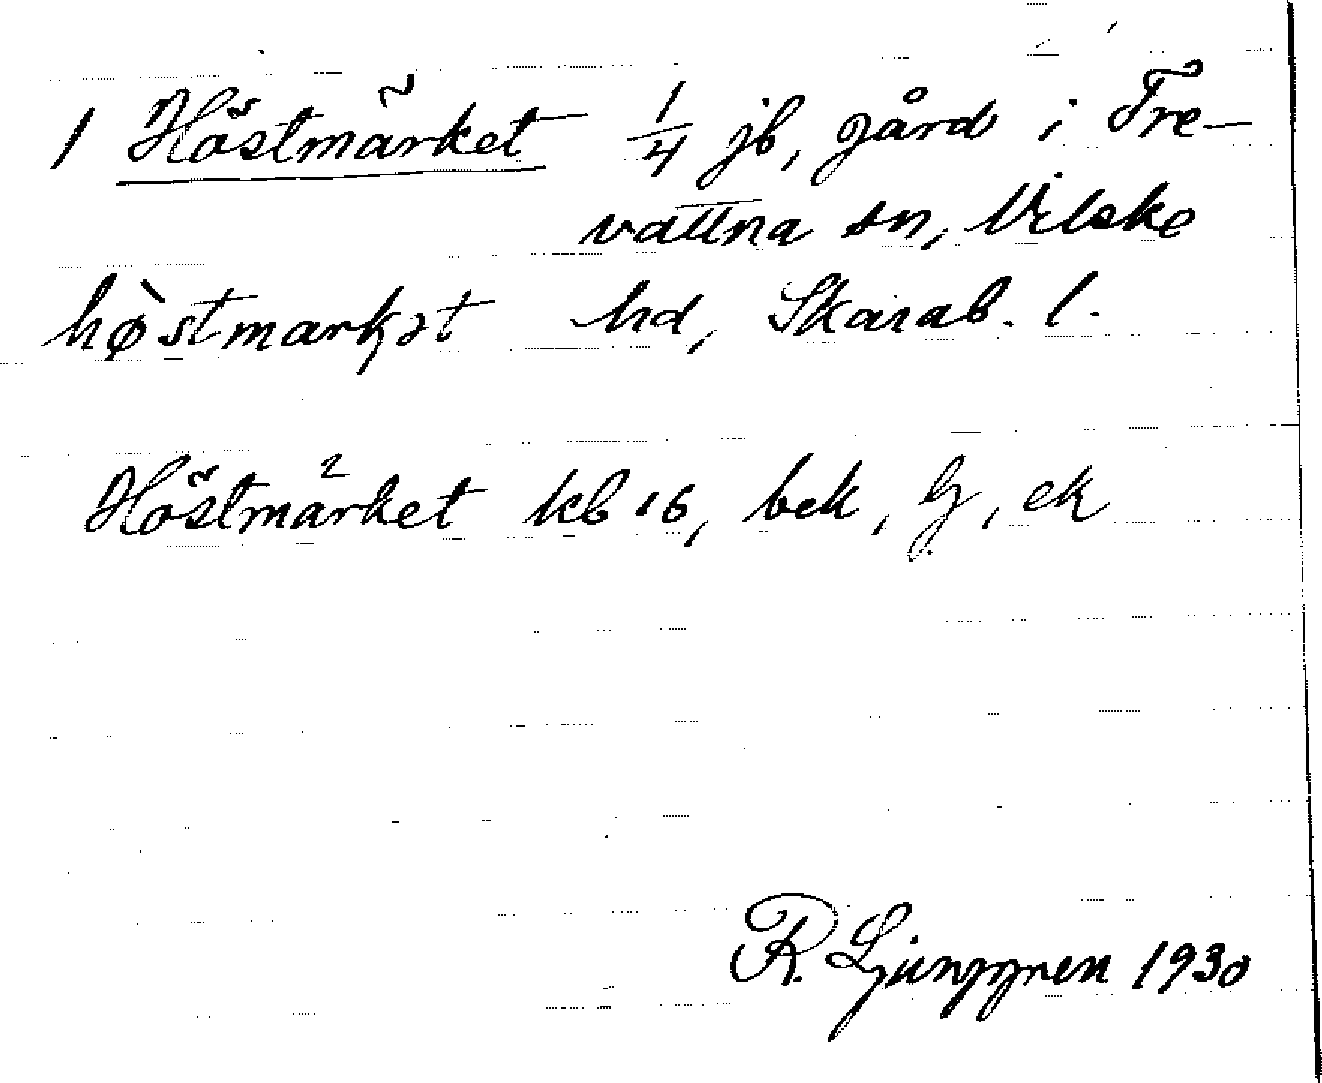 1 Höstmärket 1/4 jb, gård i Tre-
vattna sn, Vilske
hø̀stmarkət hd, Skarab. l.
Höstmärket kb 16, bek, G, ek
R. Ljunggren 1930